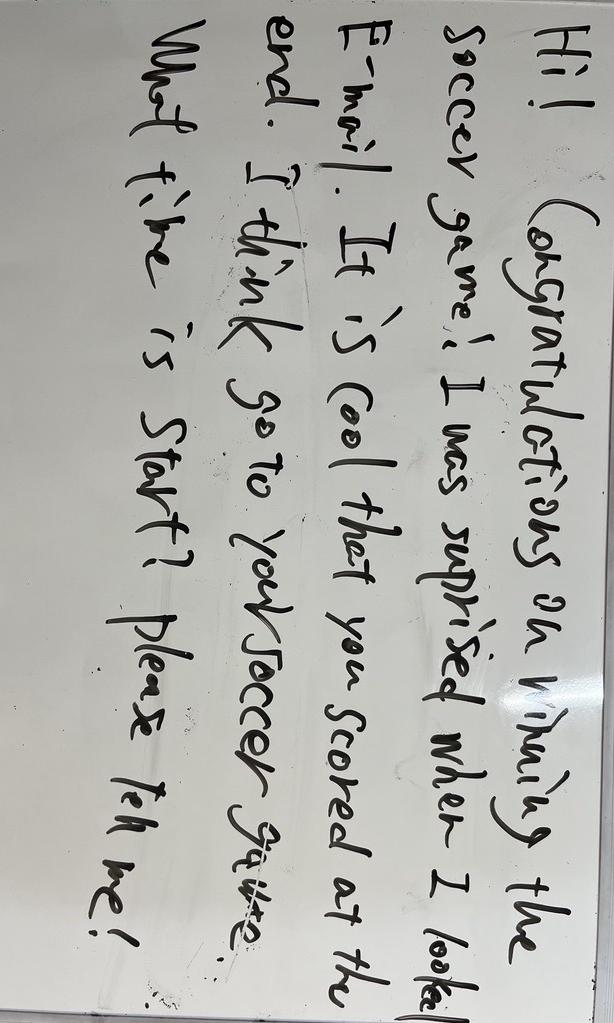 Hi! Congratulations on winning the
soccer game! I was suprised when I looked
E-mail. It is cool that you scored at the
end. I think go to your soccer game.
What time is start? please tell me!